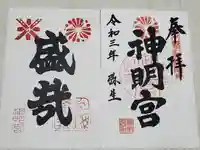 奉拝
神明宮
令和三年 弥生
盛哉